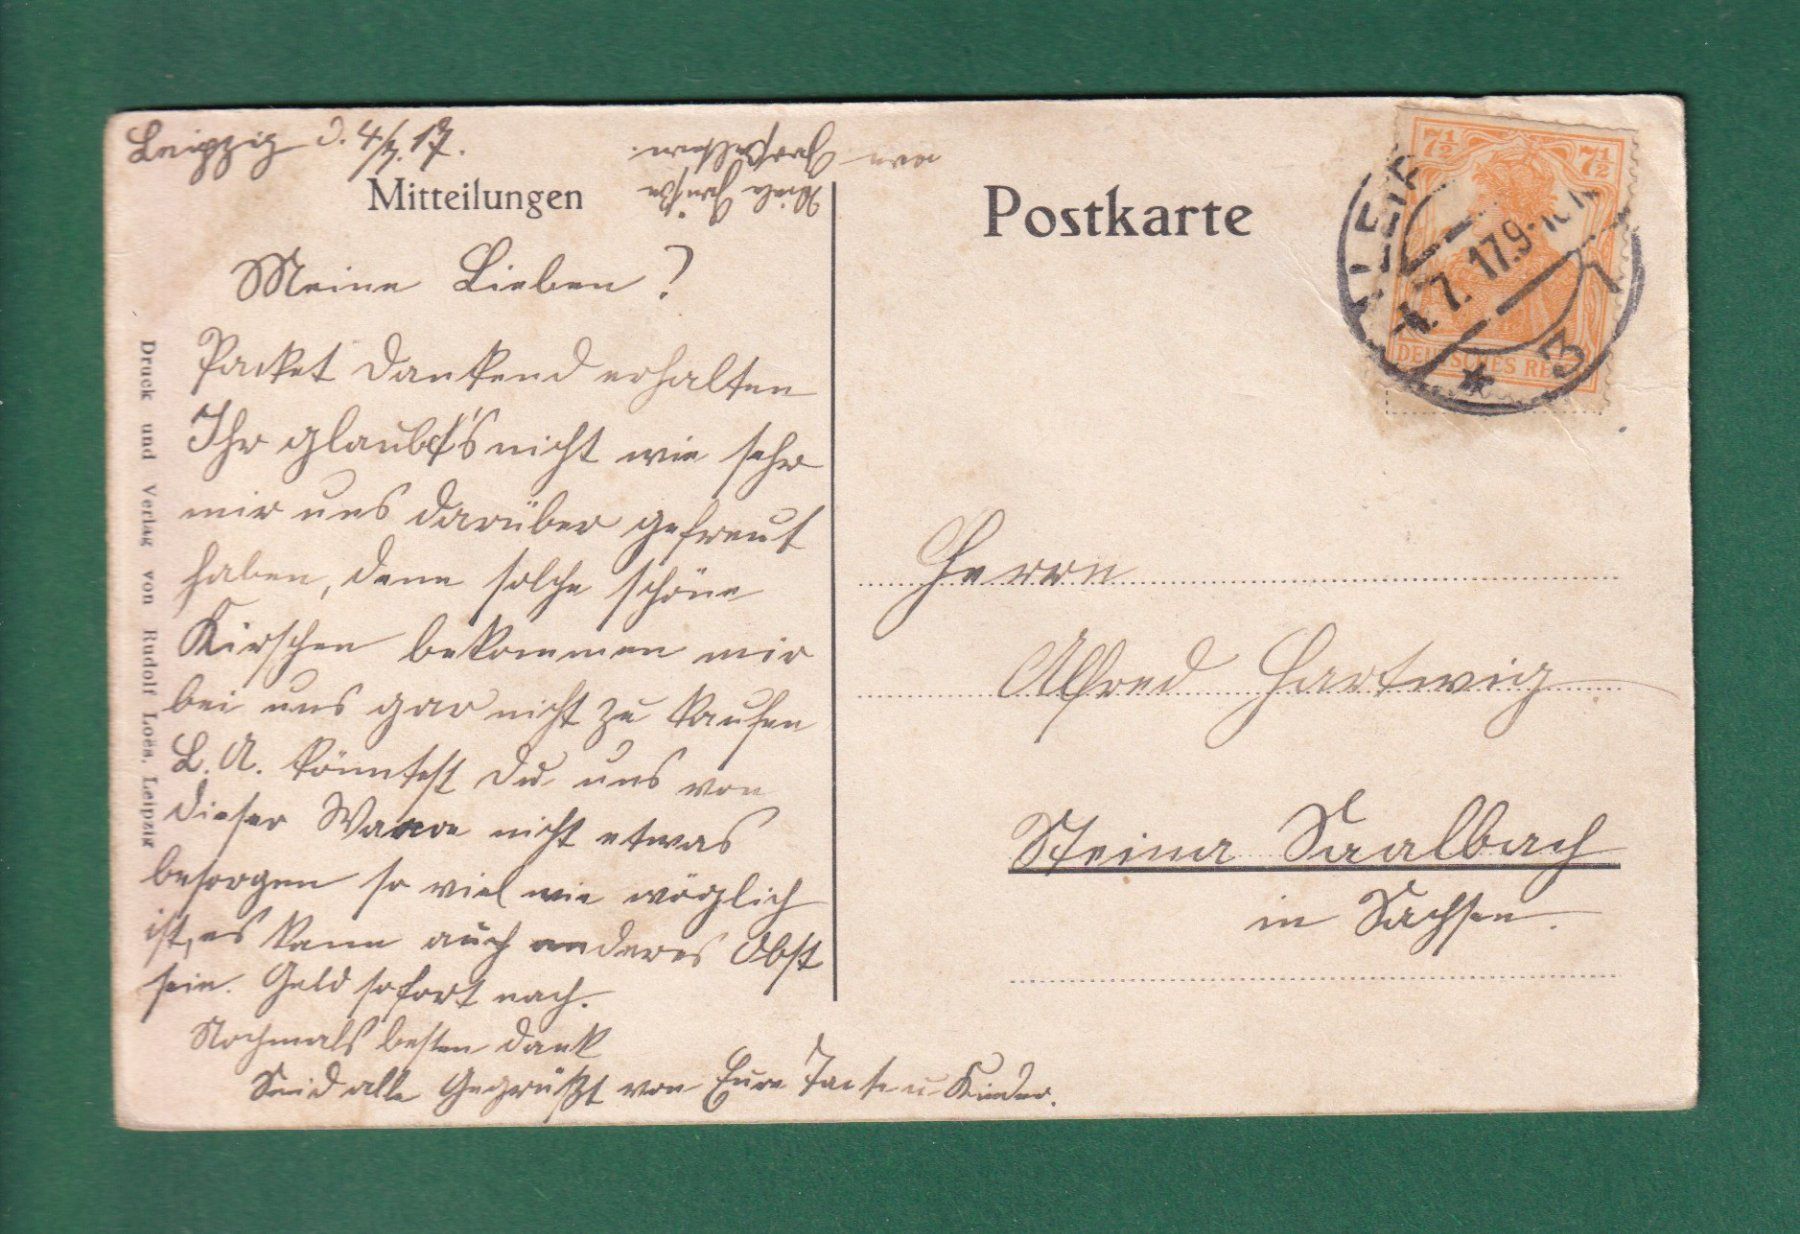 Leipzig d. 4/7. 17.
Mitteilungen
Meine Lieben?
Packet dankend erhalten
Ihr glaubt's nicht wie sehr
wir uns darüber gefreut
haben, denn solche schöne
Kirschen bekommen wir
bei uns gar nicht zu kaufen
L. A. könntest du uns von
dieser Waare nicht etwas
besorgen so viel wie möglich
ist, es kann auch anderes Obst
sein. Geld sofort nach.
Nochmals besten Dank
Seid alle Gegrüßt von Eure Tante u Kinder.
Viele Grüße
von
Großeltern.
Druck und Verlag von Rudolf Loës, Leipzig
Postkarte
7½ 7½
DEUTSCHES REICH
4. 7. 17. 9-10 N
* 3
Herrn
Alfred Hartwig
Steina Saalbach
in Sachsen.